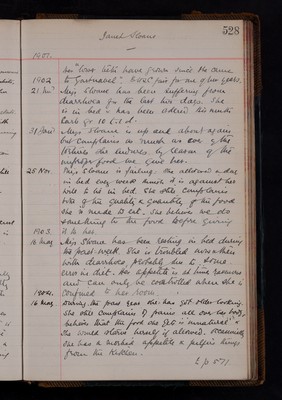 Janet Sloane
528
1901.
her "lower teeth have grown since she came
to Gartnavel".
1902
21. Jan
Miss Sloane has been suffering from
diarrhoea for the last two days. She
is in bed & has been ordered
31. Jan
Miss Sloane is up and about again
but complains as much as ever of the
she endures by reason of the
improper food we give her.
25 Nov.
Miss Sloane is failing. She allowed a day
in bed every week almost it is against her
will to be in bed. She still complains
of the quality & quantity of the food
she is made to eat. She believes we do
something to the food before giving
it to her.
1903.
16 May
Miss Sloane has been resting in bed during
the past week. She is troubled now & then
with diarrhoea, probably due to some
error in diet. Her appetite is at times ravenous
and can only be controlled when she is
confined to her room.
1904.
16 May
During the past year she has got older-looking.
She still complains of pains all over her body,
believes that the food she gets is unnatural &
she would starve herself if allowed. Occasionally
she has a morbid appetite & pilfers things
from the kitchen.
p 571.